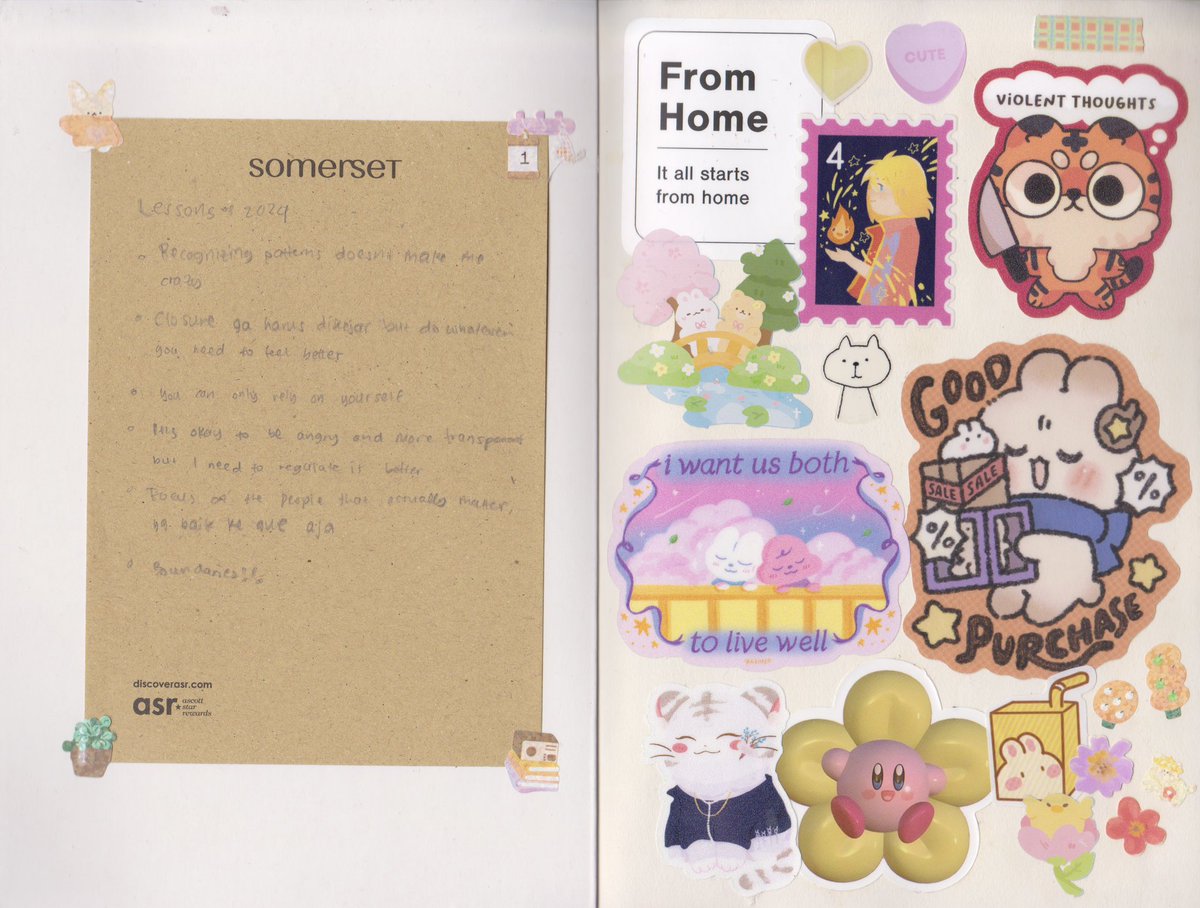 somerset
1
Lessons of 2024
Recognizing patterns doesn't make me
crazy
Closure ga harus dikejar but do whatever
you need to feel better
you can only rely on yourself
It's okay to be angry and more transparent
but I need to regulate it better
Focus on the people that actually matter,
yg baik ke gue aja
Boundaries!!
discoverasr.com
asr
ascott
star
rewards
From
Home
It all starts
from home
CUTE
4
VIOLENT THOUGHTS
GOOD
SALE SALE
%
%
PURCHASE
i want us both
to live well